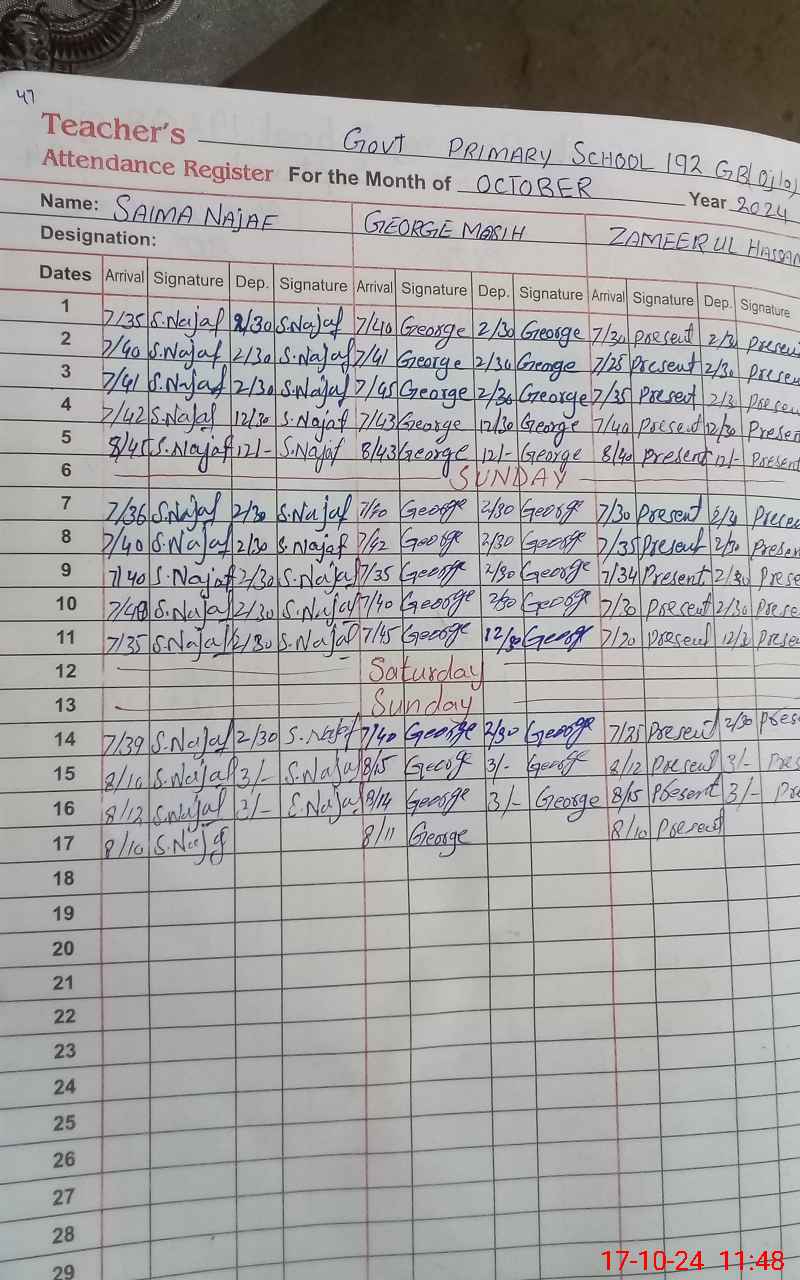 47
Teacher's Govt PRIMARY SCHOOL 192 GB
Attendance Register For the Month of OCTOBER Year 2024
Name: SAIMA NAJAF GEORGE MASIH ZAMEER UL HASSAN
Designation:
Dates Arrival Signature Dep. Signature Arrival Signature Dep. Signature Arrival Signature Dep. Signature
1 7/35 S.Najaf 2/30 S.Najaf 7/40 George 2/30 George 7/30 Present 2/3 Present
2 7/40 S.Najaf 2/30 S.Najaf 7/41 George 2/30 George 7/25 Present 2/30 Presen
3 7/41 S.Najaf 2/30 S.Najaf 7/45 George 2/30 George 7/35 Present 2/3 Presen
4 7/42 S.Najaf 12/30 S.Najaf 7/43 George 12/30 George 7/40 Present 12/30 Presen
5 8/45 S.Najaf 12/- S.Najaf 8/43 George 12/- George 8/40 Present 12/- Present
6 SUNDAY
7 7/36 S.Najaf 2/30 S.Najaf 7/40 George 2/30 George 7/30 Present 2/3 Presen
8 7/40 S.Najaf 2/30 S.Najaf 7/42 George 2/30 George 7/35 Present 2/30 Presen
9 7/40 S.Najaf 2/30 S.Najaf 7/35 George 2/30 George 7/34 Present 2/30 Prese
10 7/40 S.Najaf 2/30 S.Najaf 7/40 George 2/30 George 7/30 Present 2/30 Prese
11 7/35 S.Najaf 12/30 S.Najaf 7/45 George 12/30 George 7/20 Present 12/3 Prese
12 Saturday
13 Sunday
14 7/39 S.Najaf 2/30 S.Najaf 7/40 George 2/30 George 7/35 Present 2/30 Prese
15 8/10 S.Najaf 3/- S.Najaf 8/15 George 3/- George 8/12 Present 3/- Pres
16 8/12 S.Najaf 3/- S.Najaf 8/14 George 3/- George 8/15 Present 3/- Pre
17 8/10 S.Najaf 8/11 George 8/10 Present
18
19
20
21
22
23
24
25
26
27
28
29
17-10-24 11:48